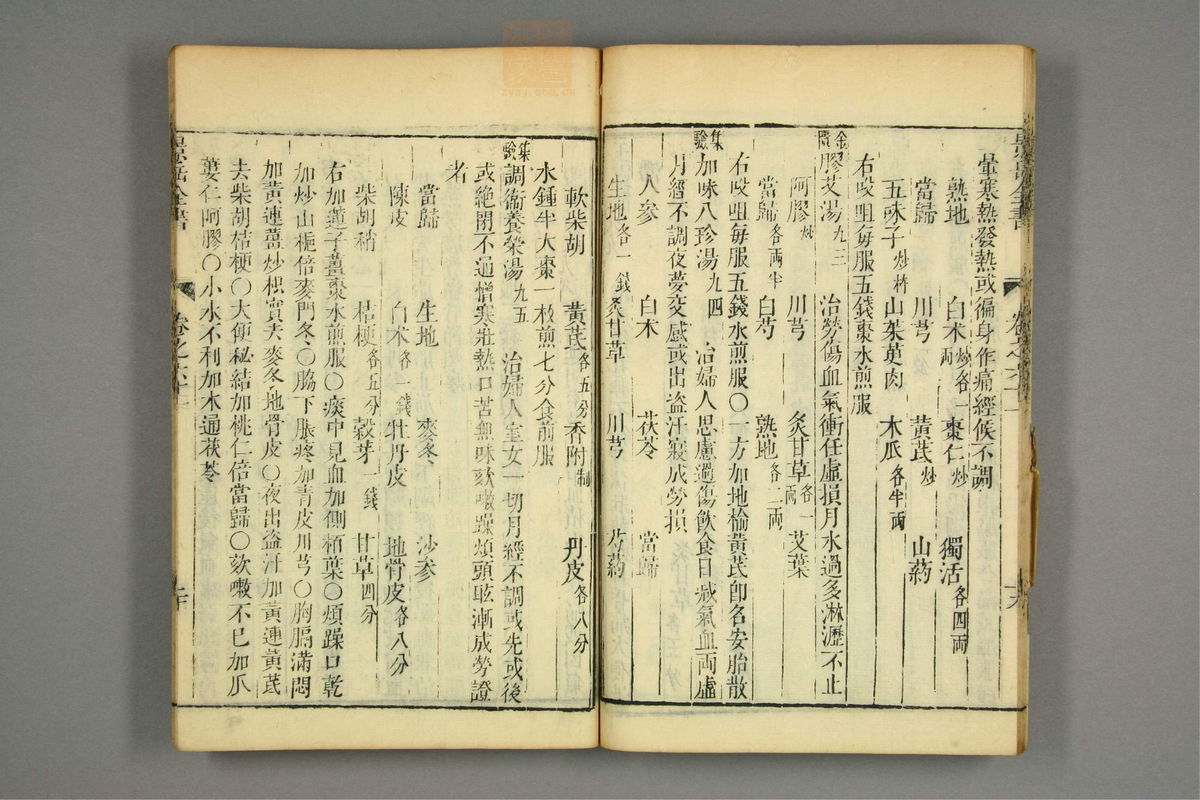 暈寒熱發熱或徧身作痛經候不調
熟地 白术炒各一兩 棗仁炒 獨活各四兩
當歸 川芎 黃茋炒 山藥
五味子炒杵 山茱萸肉 木瓜各半兩
右㕮咀每服五錢棗水煎服
金匱膠艾湯九三 治勞傷血氣衝任虛損月水過多淋瀝不止
阿膠炒 川芎 炙甘草各一兩 艾葉
當歸各兩半 白芍 熟地各二兩
右㕮咀每服五錢水煎服〇一方加地榆黃茋卽名安胎散
集驗加味八珍湯九四 治婦人思慮過傷飲食日減氣血兩虛
月經不調夜夢交感或出盜汗寢成勞損
人參 白术 茯苓 當歸
生地各一錢 炙甘草 川芎 芍藥
軟柴胡 黃茋各五分 香附制 丹皮各八分
水鍾半大棗一枚煎七分食前服
集驗調衞養榮湯九五 治婦人室女一切月經不調或先或後
或絕閉不通憎寒壯熱口苦無味欬嗽躁煩頭眩漸成勞證
者
當歸 生地 麥冬 沙參
陳皮 白术各一錢 牡丹皮 地骨皮各八分
柴胡稍 桔梗各五分 穀芽一錢 甘草四分
右加蓮子薑棗水煎服〇痰中見血加側栢葉〇煩躁口乾
加炒山梔倍麥門冬〇脇下脹疼加青皮川芎〇胸膈滿悶
加黃連薑炒枳實去麥冬地骨皮〇夜出盜汗加黃連黃茋
去柴胡桔梗〇大便秘結加桃仁倍當歸〇欬嗽不已加瓜
蔞仁阿膠〇小水不利加木通茯苓
景岳全書
卷之六十一